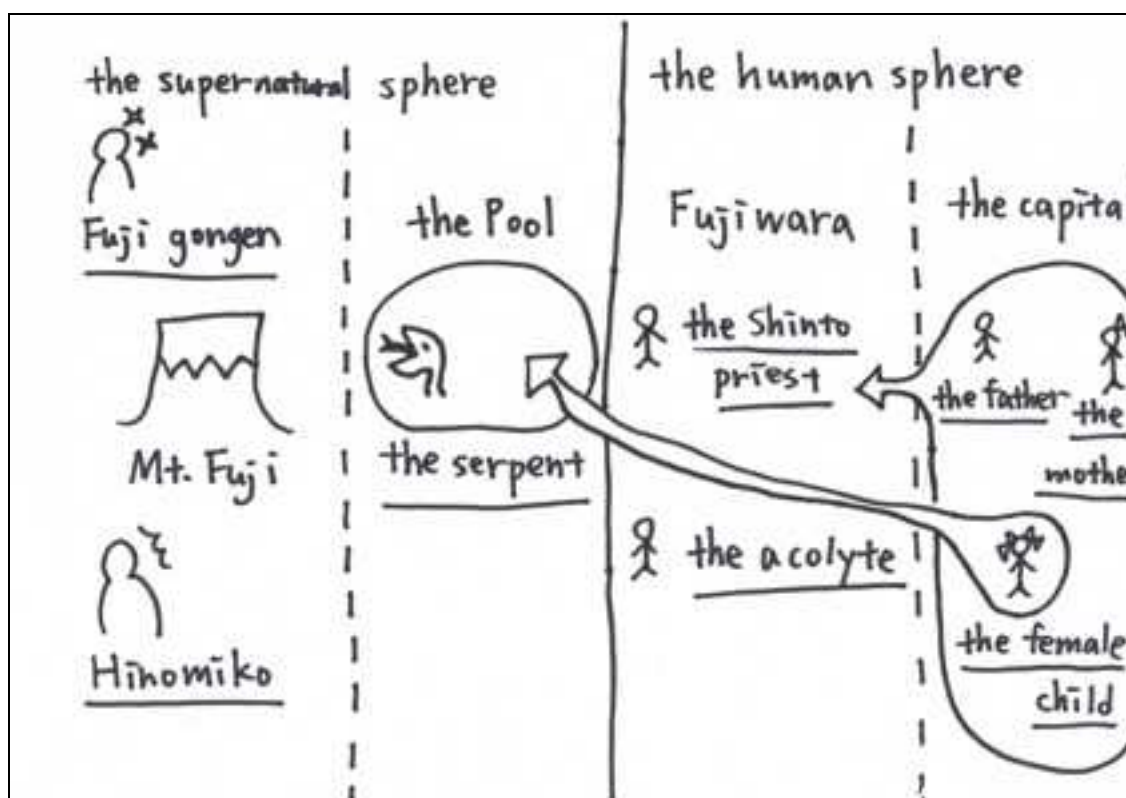 the supernatural sphere
the human sphere
Fuji gongen
Mt. Fuji
Hinomiko
the Pool
the serpent
Fujiwara
the Shinto
priest
the acolyte
the capita
the father
the
mothe
the female
child